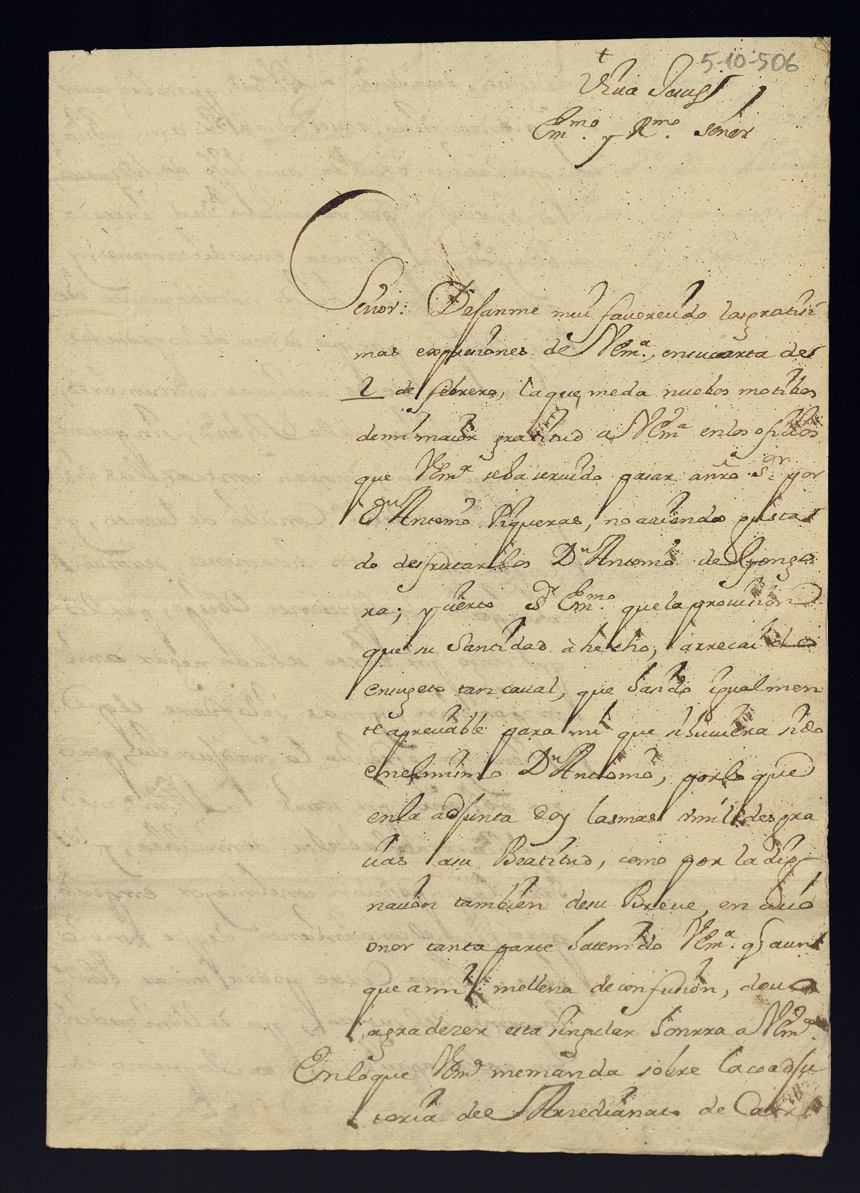 5-10-506
†
Viva Jesus
Em.mo y R.mo Señor
Señor: Defanme mui favorecido las gratisi
mas expresiones de VEm.a, en su carta de
2 de febrero, la que me da nuebos motibos
de mi maior gratitud a VEm.a en los oficios
que VEm.a se ha servido pasar a nro S.r por
D.n Antonio Piqueras, no aviendo gusta
do desfrutarlos D.n Antonio de Gongo
ra; y cierto S.r Em.mo que la provision
que su Santidad à hecho, à recaido
en sugeto tan caval, que ha sido igualmen
te apreciable para mi que si huviera sido
en el mismo D.n Antonio, por lo que
en la adjunta doy las mas vmildes gra
cias a su Beatitud, como por la dig
nacion tambien de su Breve, en cuio
onor tanta parte ha tenido VEm.a q aun
que a mi me llena de confusion, devo
agradezer esta singular honrra a VEm.a
En lo que VEm.a me manda sobre la coadju
toria del Arzedianato de